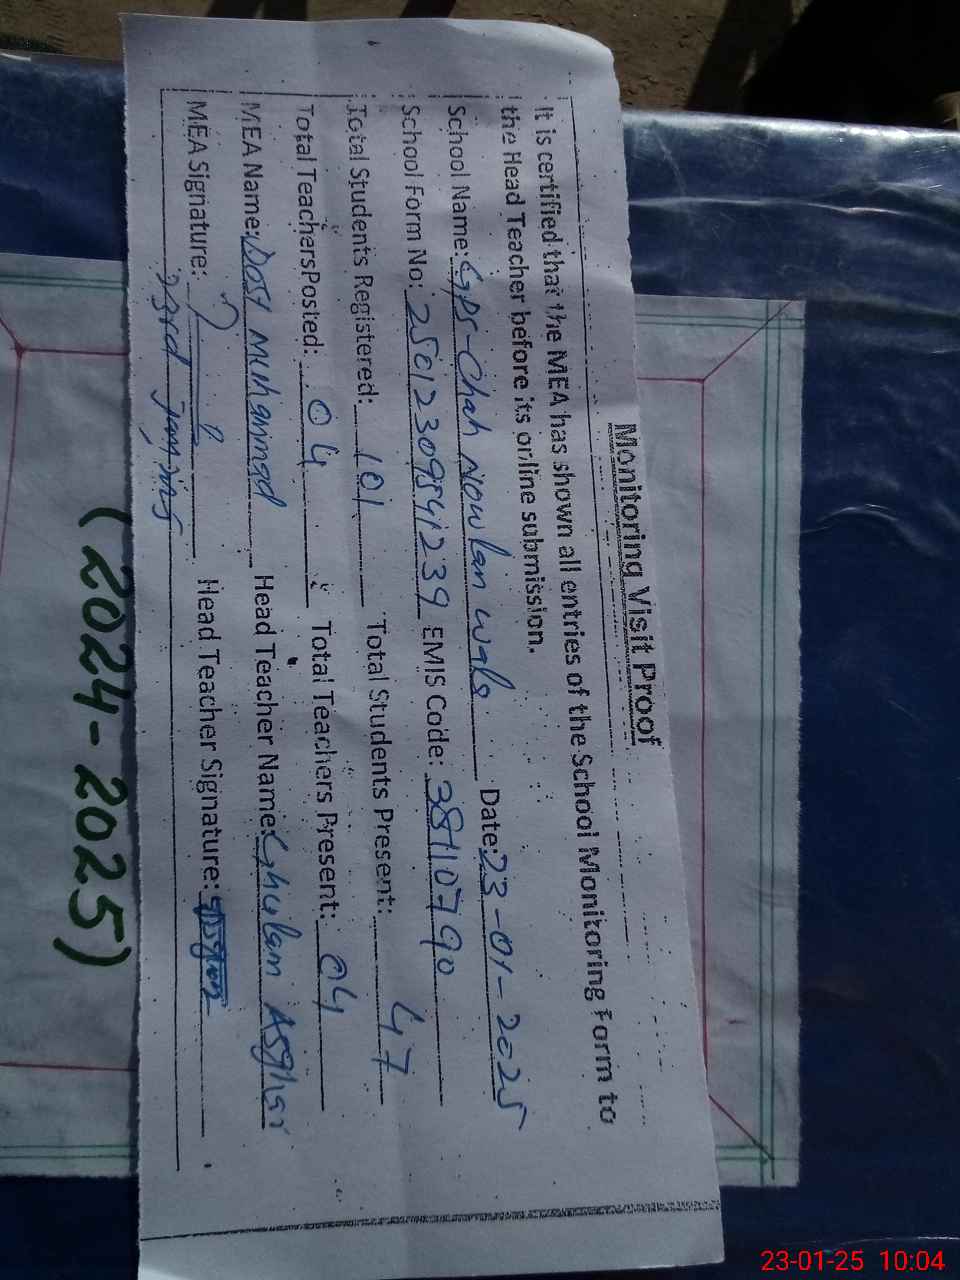 Monitoring Visit Proof
It is certified that the MEA has shown all entries of the School Monitoring Form to
the Head Teacher before its online submission.
School Name: GPS-Chah Nowlan wala Date: 23-01-2025
School Form No: 25012309541239 EMIS Code: 38110790
Total Students Registered: 101 Total Students Present: 47
Total TeachersPosted: 04 Total Teachers Present: 04
MEA Name: Dost Muhammad Head Teacher Name: Ghulam Asghar
MEA Signature: Head Teacher Signature:
23rd
(2024-2025)
23-01-25 10:04